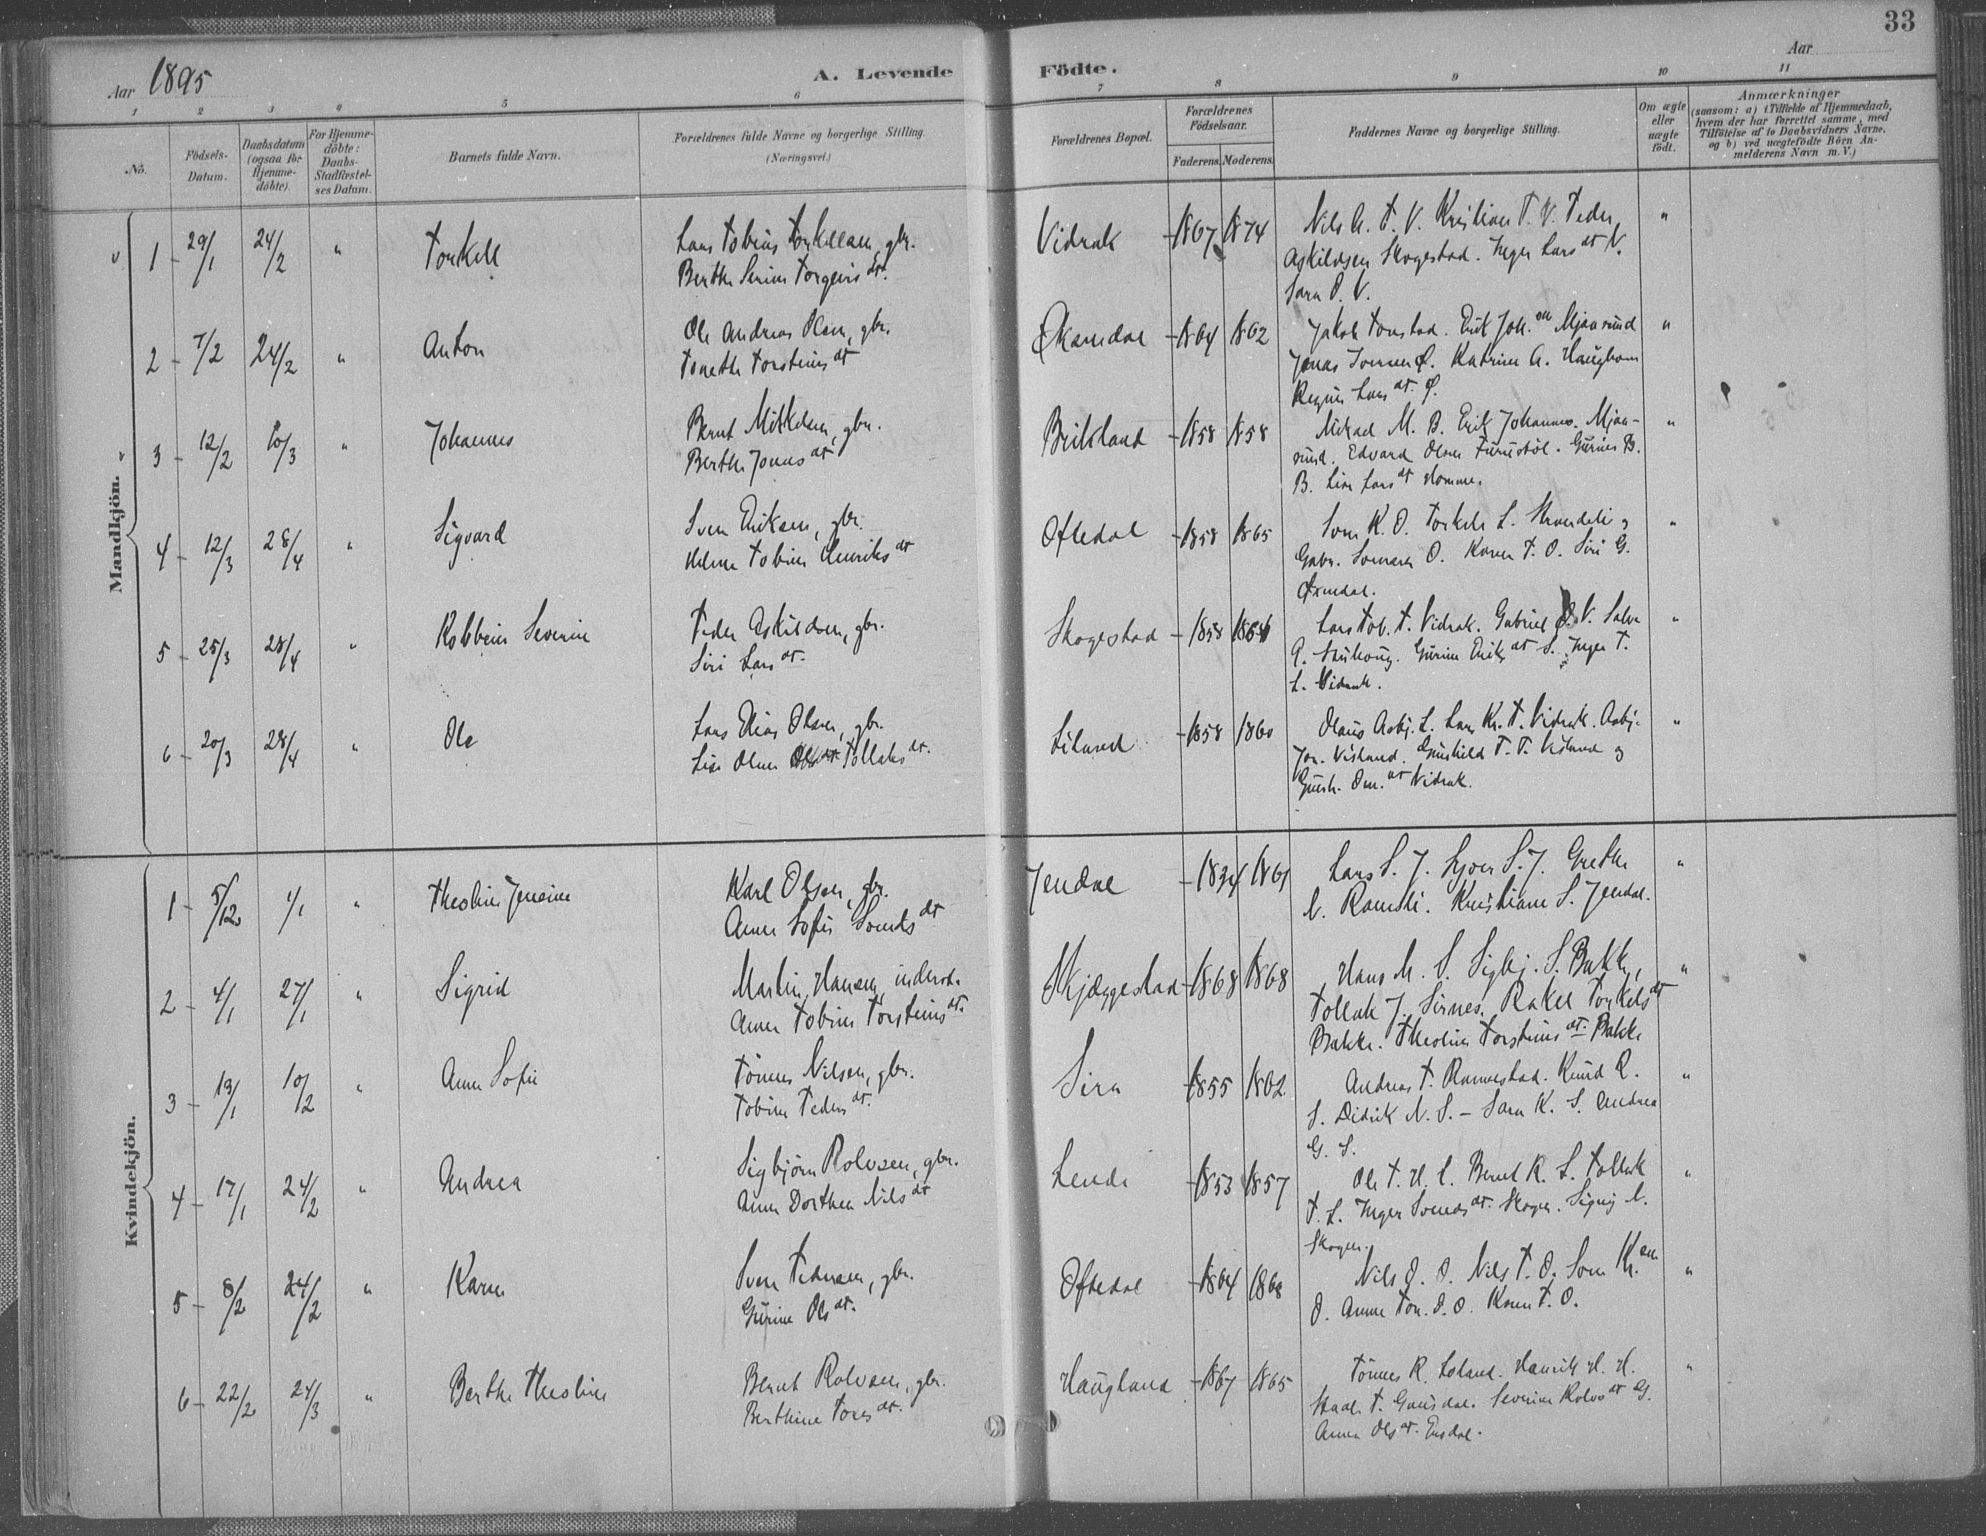 33
Aar 1895
A. Levende Födte.
Aar
1 2 3 4 5 6 7 8 9 10 11
No.
Födsels-
Datum.
Daabsdatum
(ogsaa for
Hjemme-
döbte).
For Hjemme-
döbte:
Daabs-
Stadfæstel-
ses Datum.
Barnets fulde Navn.
Forældrenes fulde Navne og borgerlige Stilling.
(Næringsvei.)
Forældrenes Bopæl.
Forældrenes
Födselsaar.
Faderens. Moderens.
Faddernes Navne og borgerlige Stilling.
Om ægte
eller
uægte
födt.
Anmærkninger
(saasom: a) i Tilfælde af Hjemmedaab,
hvem der har forrettet samme, med
Tilföielse af to Daabsvidners Navne,
og b) ved uægtefödte Börn An-
melderens Navn m. V.)
Mandkjön.
1 29/1 24/2 " Torkell
Lars Tobias Torkelsen, gbr.
Berthe Serine Torgeirsdt.
Vidrak 1867 1874
Nils A. T. V. Kristian T. V. Peder
Askildsen Skogestad. Inger Larsdt V.
Sara O. V. "
2 7/2 24/2 " Anton
Ole Andreas Olsen, gbr.
Tonethe Torsteinsdt
Øksendal 1864 1862
Jakob Tonstad. Erik Joh.sen Mjaasund
Jonas Ø. Katrine A. Haughom
Larsdt. Ø. "
3 12/2 10/3 " Johannes
Bernt Mikkelsen, gbr.
Berthe Jonasdt
Birkeland 1858 1858
Mikael M. B. Erik Johannes. Mjaa-
sund. Edvard Olsen Furustøl. Gurine B.
B. Lise Larsdt Homme. "
4 12/3 28/4 " Sigvard
Sven Eriksen, gbr.
Helene Tobine Henriksdt
Oftedal 1858 1865
Sven K. O. Torkels L.
Gabr. O. Karen T. O. Siri G.
Øxendal. "
5 25/3 28/4 " Severin
Peder Askildsen, gbr.
Siri Larsdt.
Skogestad 1858
Lars Tob. T. Vidrak. Gabriel O. V. Salve
A. Gurine Eriksdt S. Inger T.
L. Vidrak. "
6 20/3 28/4 " Ole
Lars Elias Olsen, gbr.
Lise Oline Tollaksdt.
Liland 1858 1860
Olaus Asbj. L. Lars Kr. T. Vidrak. Asbj.
Jon. Vidland. Gunhild T. T. og
Gunh. Om.dt Vidrak. "
Kvindekjön.
1 5/12 1/1 " Theoline Jensine
Karl Olsen, gbr.
Anne Sofie Svendsdt
Jendal 1834 1861
Lars S. J. Syver S. J. Grethe
N. Kristiane S. Jendal. "
2 4/1 27/1 " Sigrid
Martin Hansen, inderst.
Anne Tobine Torsteinsdt.
Skjæggestad 1868 1868
Hans M. S. Sigbj. S. Bakke,
Tollak J. Sirnes. Rakel Torkelsdt
Bakke. Theoline Torsteinsdt. Bakke "
3 13/1 10/2 " Anne Sofie
Tönnes Nilsen, gbr.
Tobine Pedersdt.
Sira 1855 1862
Andreas T. Rannestad. Knud R.
S. Didrik N. S. – Sara K. S. Andrea
G. S. "
4 17/1 24/2 " Andrea
Sigbjörn Rolvsen, gbr.
Anne Dorthea Nilsdt
Lende 1853 1857
Ole T. H. L. Bernt R. L. Tollak
T. L. Inger Svendsdt. Skogen. Signy N.
Skogen. "
5 8/2 24/2 " Karen
Sven Pedersen, gbr.
Gurine Olsdt.
Oftedal 1864
Nils O. O. Nils T. O. Sven K.sen
O. Anne Ton. O. O. Karen T. O. "
6 22/2 24/3 " Berthe Theoline
Bernt Rolvsen, gbr.
Berthine Toresdt.
Haugland 1867 1865
Tönnes R. Loland. Henrik H. H.
T. Gausdal. Severine Rolvsdt G.
Anne Olsdt. Eusdal. "